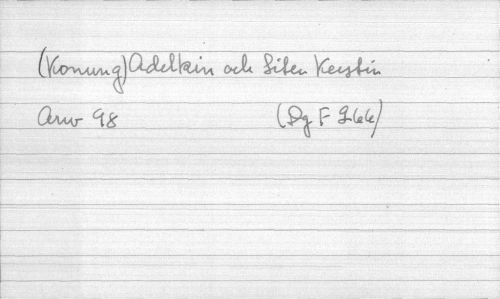 (Konung) Adelkin och Liten Kerstin
Arw 98 (Dg F 266)